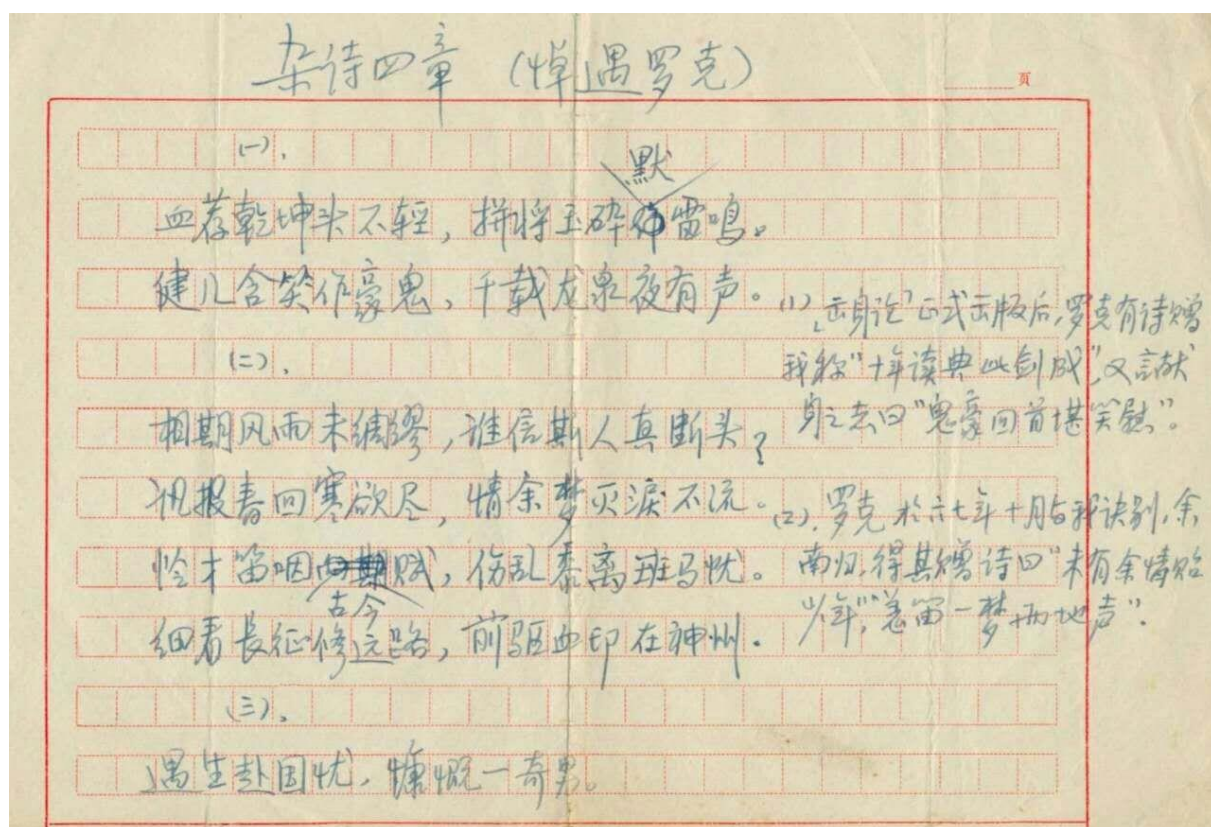 杂诗四章 (悼遇罗克)
页
(一).
默
血荐乾坤头不轻，拼将玉碎雷鸣。
健儿含笑作豪鬼，千载龙泉夜有声。
(二).
相期风雨未绸缪，谁信斯人真断头？
讯报春回寒欲尽，情余梦灭泪不流。
怜才笛咽赋，伤乱黍离班马忧。
古今
细看长征修远路，前驱血印在神州.
(三).
遇生赴国忧，慷慨一奇男。
(1)、"出身论"正式出版后，罗克有诗赠
我称"十年读典此剑成"，又言献
身之志曰"鬼豪回首堪笑慰"。
(2). 罗克於六七年十月与我诀别，余
南归，得其赠诗曰"未有余情贻
少年"，"羌笛一梦两地声".